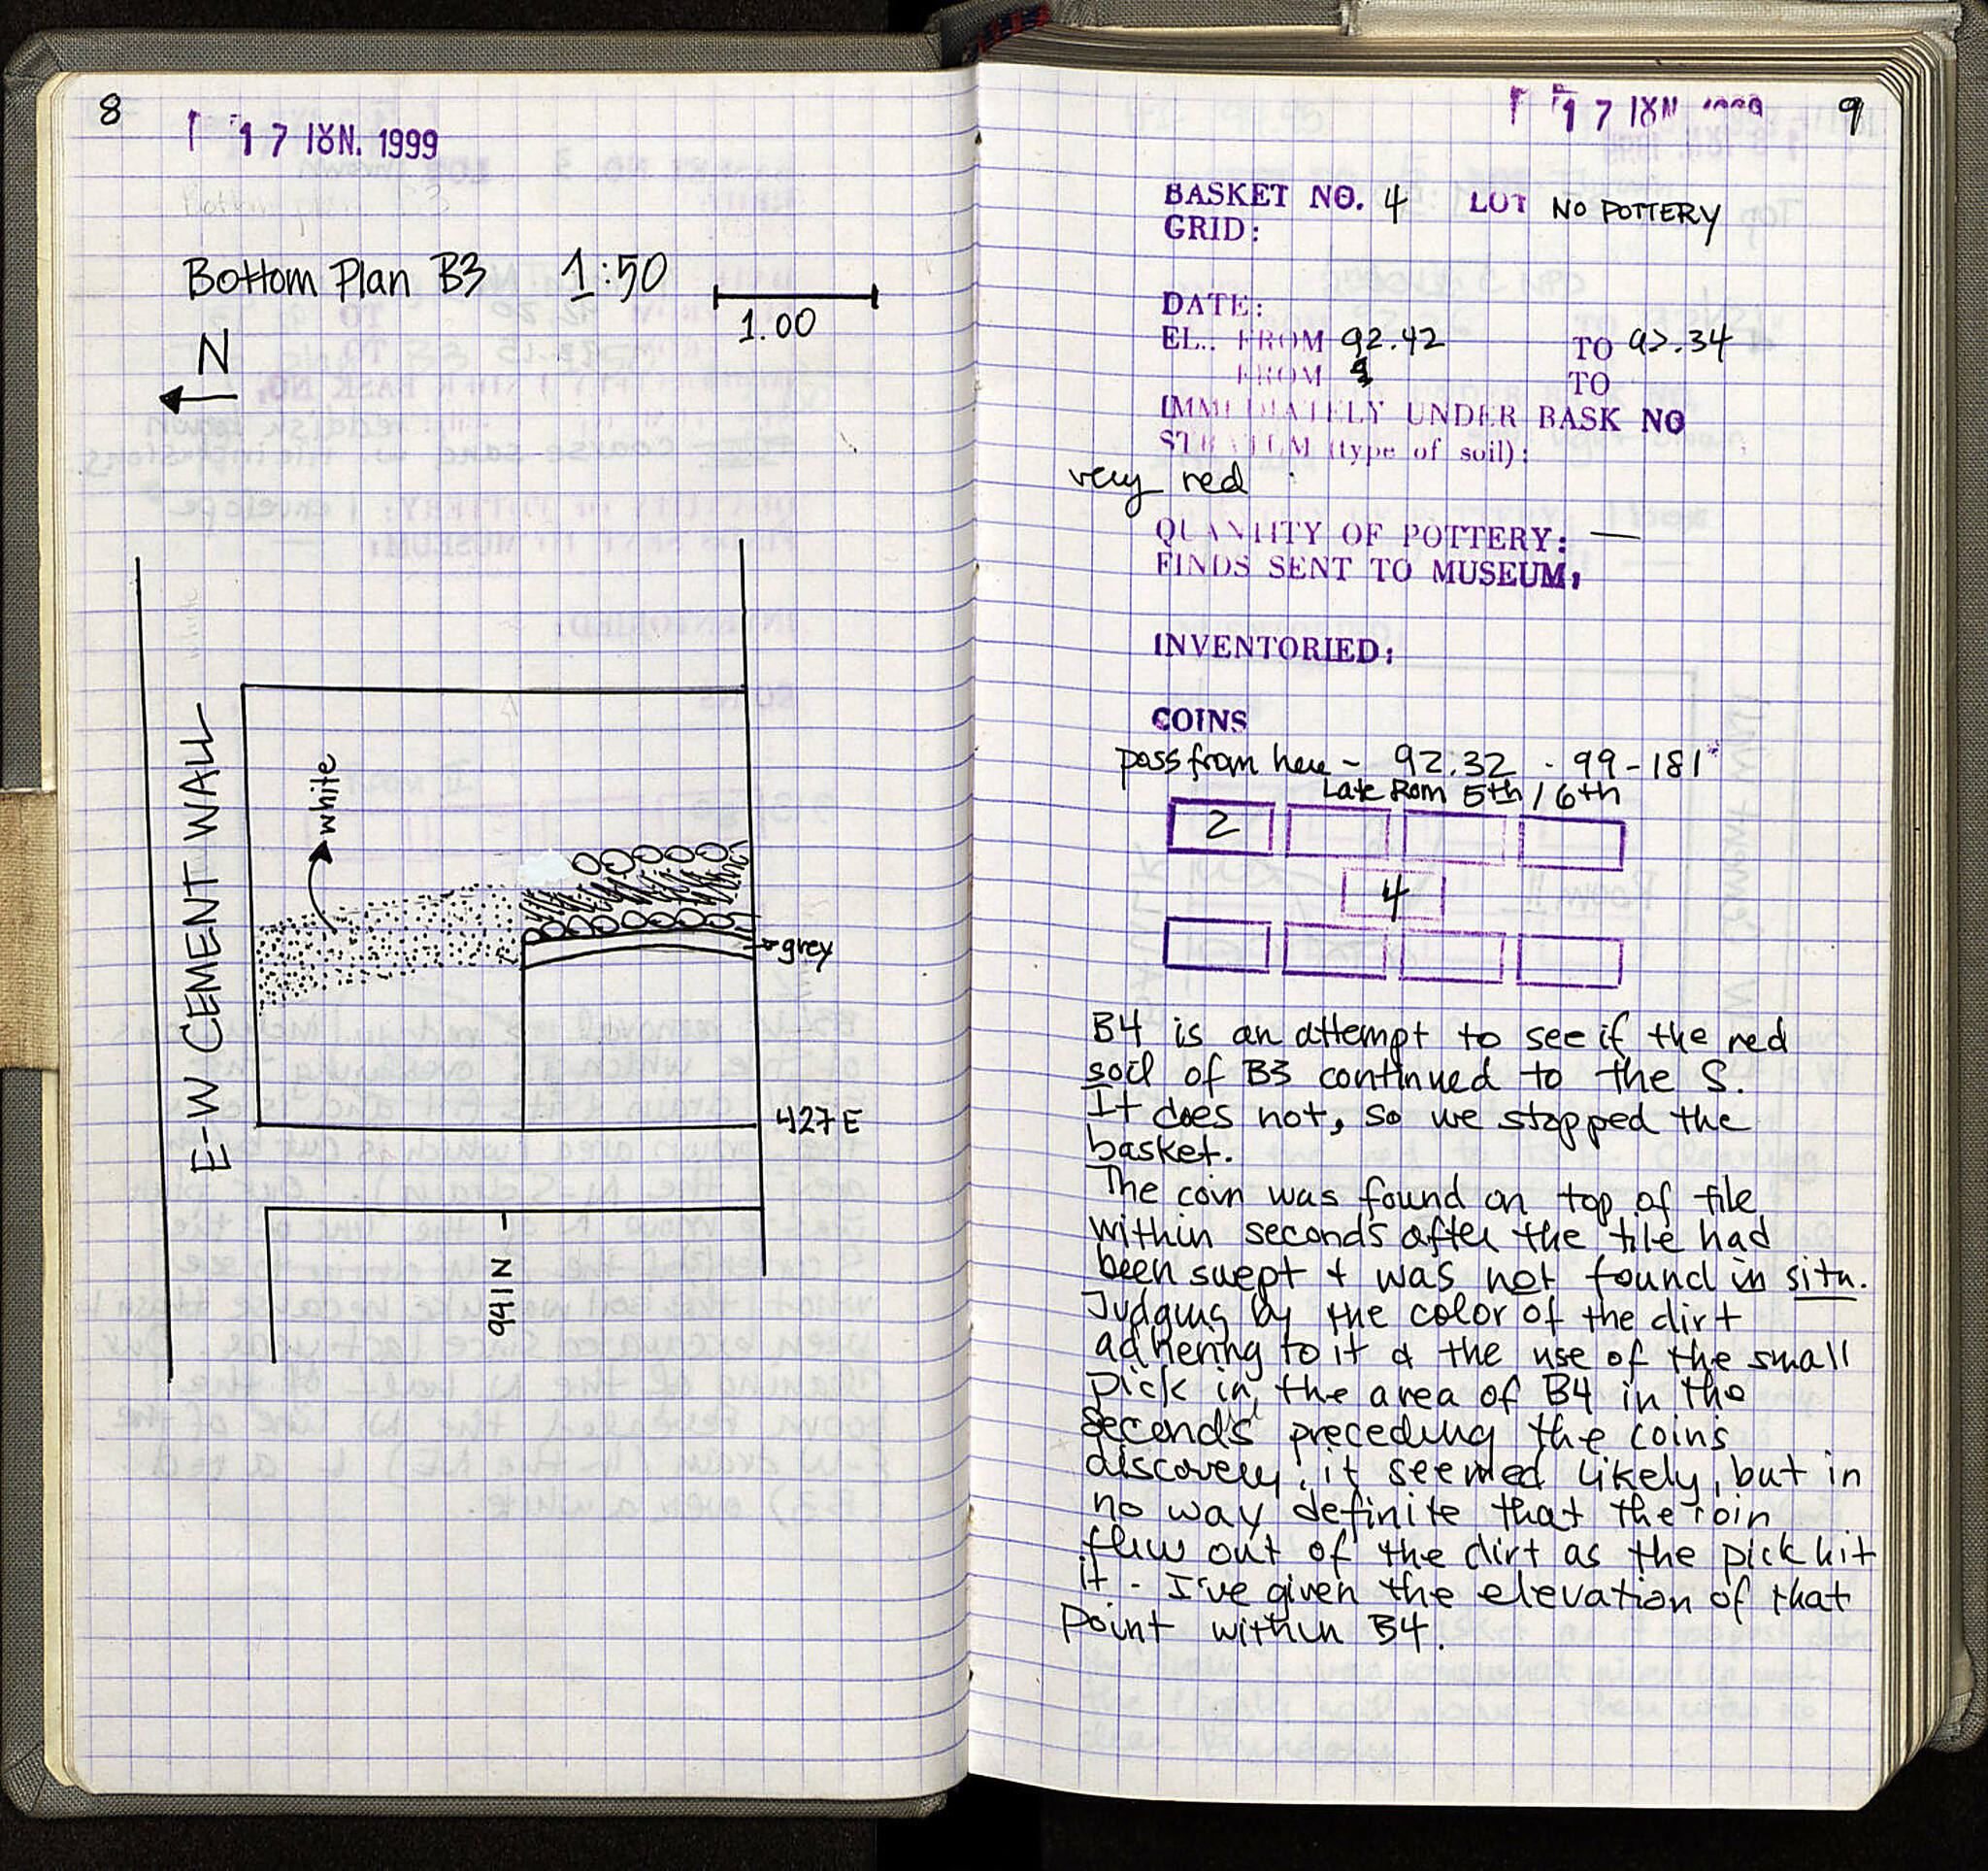 8
17 ΙΟΥΝ. 1999
Bottom Plan B3 1:50
1.00
N
E-W CEMENT WALL
white
grey
427 E
991 N
17 ΙΟΥΝ 1999 9
BASKET NO. 4 LOT NO POTTERY
GRID:
DATE:
EL.. FROM 92.42 TO 92.34
FROM TO
IMMEDIATELY UNDER BASK NO
STRATUM (type of soil):
very red
QUANTITY OF POTTERY: —
FINDS SENT TO MUSEUM:
INVENTORIED:
COINS
poss from here - 92.32 . 99-181
Late Rom 5th / 6th
2
4
B4 is an attempt to see if the red
soil of B3 continued to the S.
It does not, so we stopped the
basket.
The coin was found on top of tile
within seconds after the tile had
been swept + was not found in situ.
Judging by the color of the dirt
adhering to it & the use of the small
pick in the area of B4 in the
seconds preceding the coins
discovery, it seemed likely, but in
no way definite that the coin
flew out of the dirt as the pick hit
it - I've given the elevation of that
point within B4.